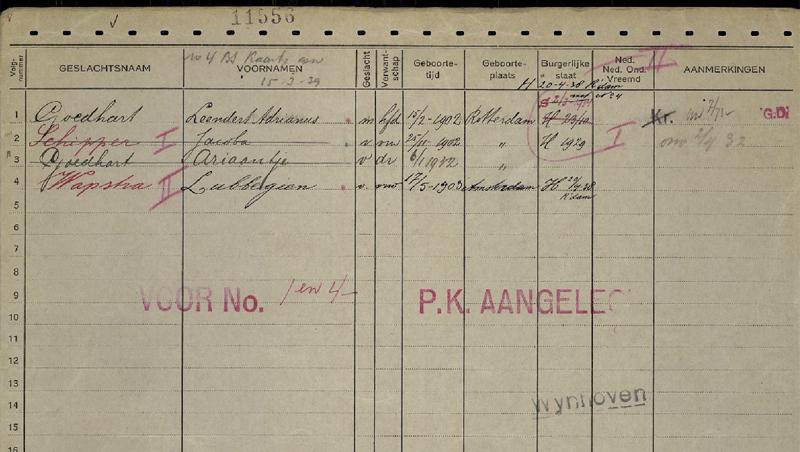 11556
Volg-nummer GESLACHTSNAAM VOORNAMEN Geslacht Verwant-schap Geboorte-tijd Geboorte-plaats Burgerlijke staat Ned. Ned. Ond. Vreemd AANMERKINGEN
no 4 BS Kaart
15-3-39
H 20-4-38 R'dam
II
1 Goedhart Leendert Adrianus m hfd 15/2-1902 Rotterdam H Kr. G.D
2 Schipper I Jacoba v vrw 25/11 1902 " H 1929 I 32
3 Goedhart Ariaantje v dr 6/1 1932 "
4 Wapstra II Lubbegien v. vrw 17/5-1903 Amsterdam H 20/4-38
R'dam
5
6
7
8
9 VOOR No. 1 en 4 P.K. AANGELEG
10
11
12
13
14 Wynhoven
15
16